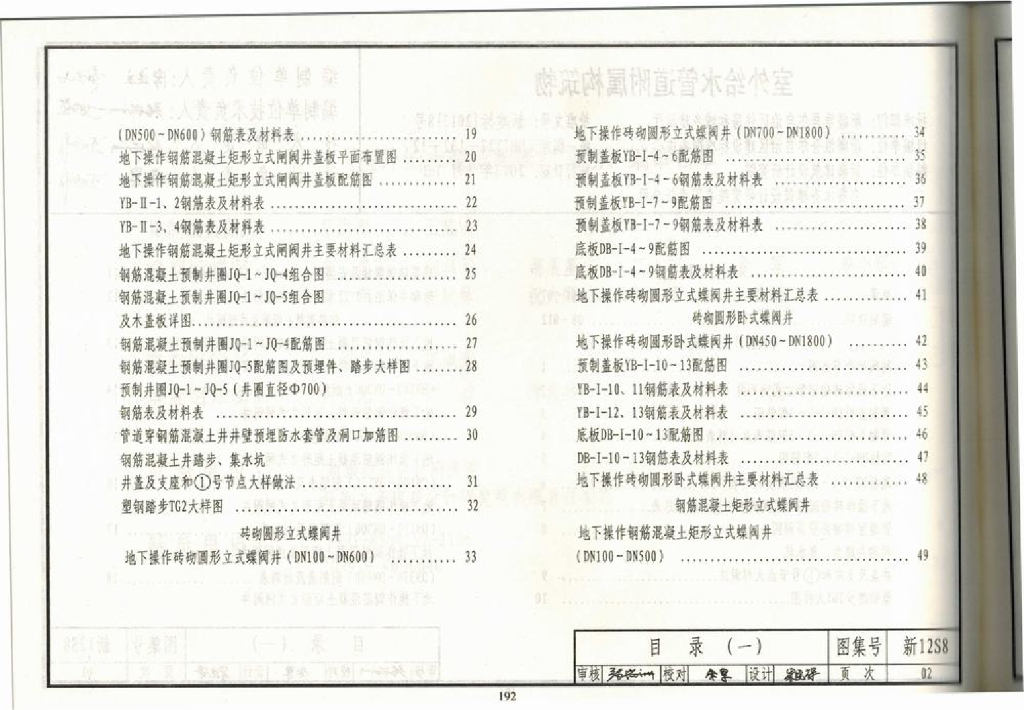 (DN500~DN600)钢筋表及材料表 ........ 19
地下操作钢筋混凝土矩形立式闸阀井盖板平面布置图 ........ 20
地下操作钢筋混凝土矩形立式闸阀井盖板配筋图 ........ 21
YB-II-1、2钢筋表及材料表 ........ 22
YB-II-3、4钢筋表及材料表 ........ 23
地下操作钢筋混凝土矩形立式闸阀井主要材料汇总表 ........ 24
钢筋混凝土预制井圈JQ-1~JQ-4组合图 ........ 25
钢筋混凝土预制井圈JQ-1~JQ-5组合图
及木盖板详图 ........ 26
钢筋混凝土预制井圈JQ-1~JQ-4配筋图 ........ 27
钢筋混凝土预制井圈JQ-5配筋图及预埋件、踏步大样图 ........ 28
预制井圈JQ-1~JQ-5(井圈直径Φ700)
钢筋表及材料表 ........ 29
管道穿钢筋混凝土井井壁预埋防水套管及洞口加筋图 ........ 30
钢筋混凝土井踏步、集水坑
井盖及支座和①号节点大样做法 ........ 31
塑钢踏步TG2大样图 ........ 32
砖砌圆形立式蝶阀井
地下操作砖砌圆形立式蝶阀井(DN100~DN600) ........ 33
地下操作砖砌圆形立式蝶阀井(DN700~DN1800) ........ 34
预制盖板YB-I-4~6配筋图 ........ 35
预制盖板YB-I-4~6钢筋表及材料表 ........ 36
预制盖板YB-I-7~9配筋图 ........ 37
预制盖板YB-I-7~9钢筋表及材料表 ........ 38
底板DB-I-4~9配筋图 ........ 39
底板DB-I-4~9钢筋表及材料表 ........ 40
地下操作砖砌圆形立式蝶阀井主要材料汇总表 ........ 41
砖砌圆形卧式蝶阀井
地下操作砖砌圆形卧式蝶阀井(DN450~DN1800) ........ 42
预制盖板YB-I-10~13配筋图 ........ 43
YB-I-10、11钢筋表及材料表 ........ 44
YB-I-12、13钢筋表及材料表 ........ 45
底板DB-I-10~13配筋图 ........ 46
DB-I-10~13钢筋表及材料表 ........ 47
地下操作砖砌圆形卧式蝶阀井主要材料汇总表 ........ 48
钢筋混凝土矩形立式蝶阀井
地下操作钢筋混凝土矩形立式蝶阀井
(DN100~DN500) ........ 49
目 录 (一) 图集号 新12S8
审核 校对 设计 页 次 02
192